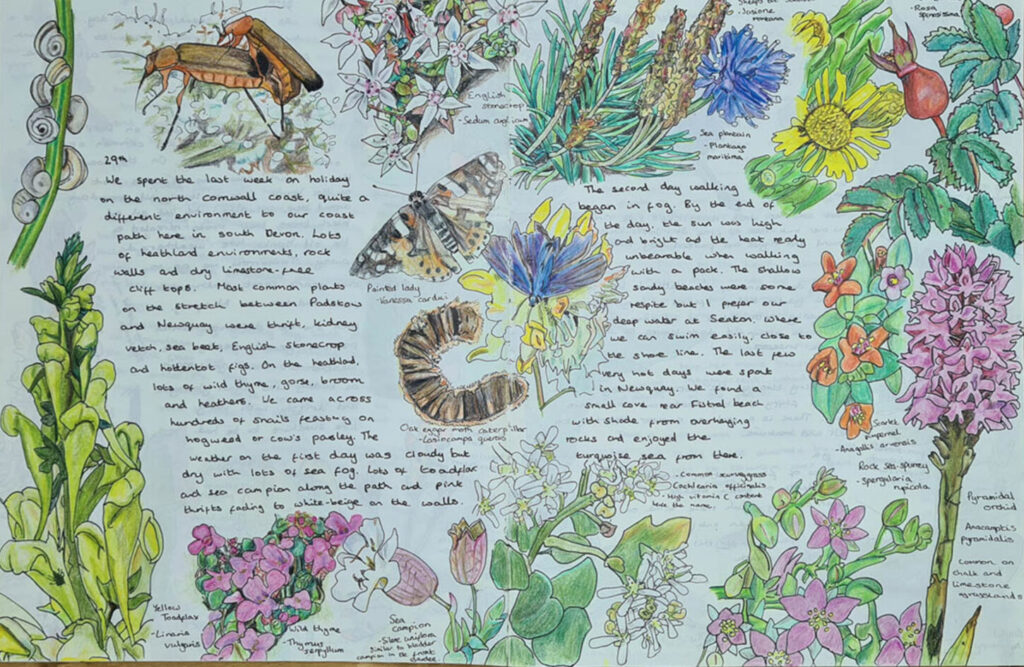 29th
We spent the last week on holiday
on the north cornwall coast, quite a
different environment to our coast
path here in south Devon. Lots
of heathland environments, rock
wells and dry limestone-free
cliff tops. Most common plants
on the stretch between Padstow
and Newquay were thrift, kidney
vetch, sea beet, English stonecrop
and hottentot figs. On the heathland,
lots of wild thyme, gorse, broom
and heathers. We came across
hundreds of snails feasting on
hogweed or cow's parsley. The
weather on the first day was cloudy but
dry with lots of sea fog. Lots of toadflax
and sea campion along the path and pink
thrifts fading to white-beige on the walls.
The second day walking
began in fog. By the end of
the day, the sun was high
and bright and the heat really
unbearable when walking
with a pack. The shallow
sandy beaches were some
respite but I prefer our
deep water at Seaton, where
we can swim easily, close to
the shore line. The last few
very hot days were spent
in Newquay. We found a
small cove near Fistral beach
with shade from overhanging
rocks and enjoyed the
turquoise sea from there.
English
stonecrop
- Sedum anglicum
- Jasione
montana
- Rosa
spinosissima
Sea plantain
- Plantago
maritima
Painted lady
- Vanessa cardui
Oak eggar moth caterpillar
- Lasiocampa quercus
- Common scurvygrass
Cochlearia officinalis
- High vitamin C content
hence the name.
Scarlet
pimpernel
- Anagallis arvensis
Rock sea-spurrey
- Spergularia
rupicola
Pyramidal
orchid
Anacamptis
pyramidalis
Common on
chalk and
limestone
grasslands
Yellow
Toadflax
- Linaris
vulgaris
Wild thyme
- Thymus
serpyllum
Sea
campion
- Silene uniflora
Similar to bladder
campion in the front
garden